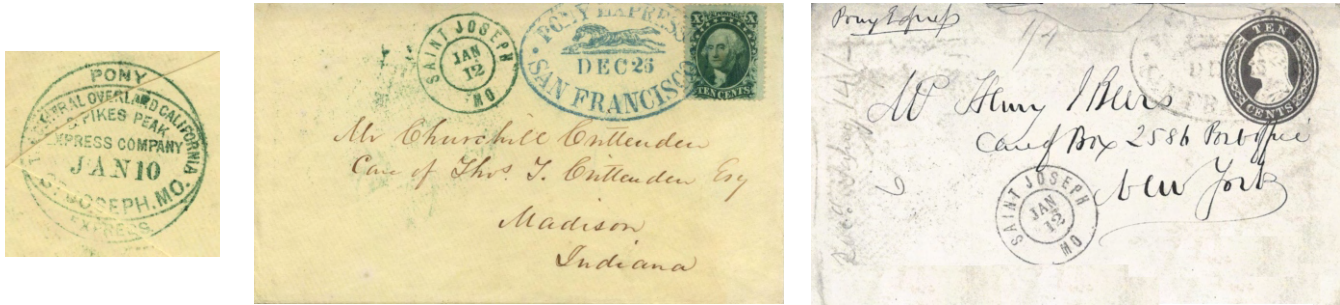 PONY
THE CENTRAL OVERLAND CALIFORNIA
& PIKES PEAK
EXPRESS COMPANY
JAN 10
ST. JOSEPH, MO.
EXPRESS
SAINT JOSEPH
JAN
12
MO
PONY EXPRESS
DEC 25
SAN FRANCISCO
X
TEN CENTS
Mr Churchill Crittenden
Care of Thos. T. Crittenden Esq
Madison
Indiana
Pony Express
1/4
TEN
CENTS
Mr Henry J Beers
Care of Box 2586 Post office
New York
SAINT JOSEPH
JAN
12
MO